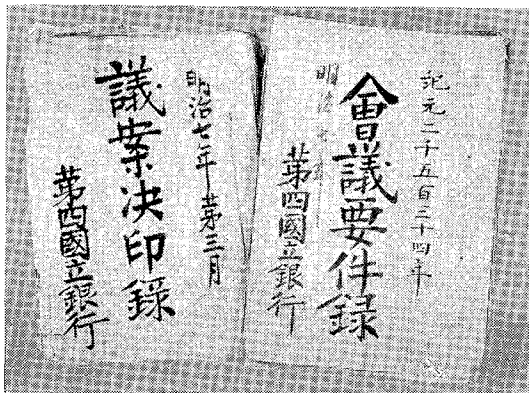 紀元二千五百三十四年
會議要件録
明治七
第四國立銀行
明治七年第三月
議案決印録
第四國立銀行